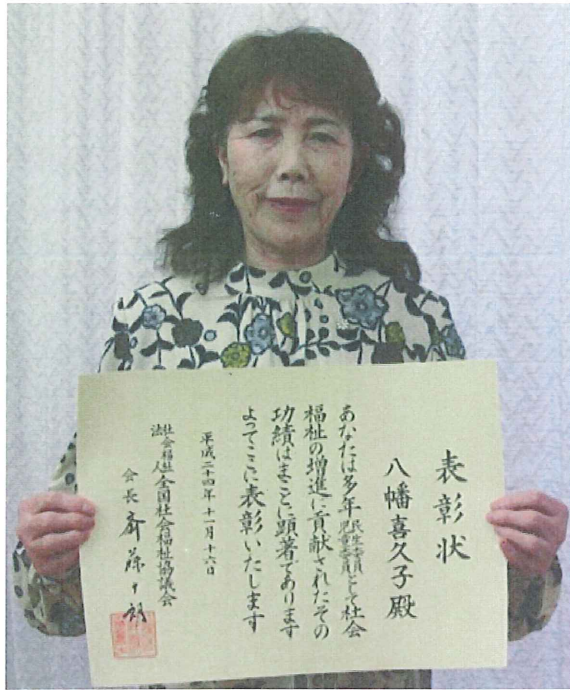 表彰状
八幡喜久子殿
あなたは多年民生委員児童委員として社会
福祉の増進に貢献されたその
功績はまことに顕著であります
よってここに表彰いたします
平成二十四年十一月十六日
社会福祉法人全国社会福祉協議会
会長 斎藤十朗